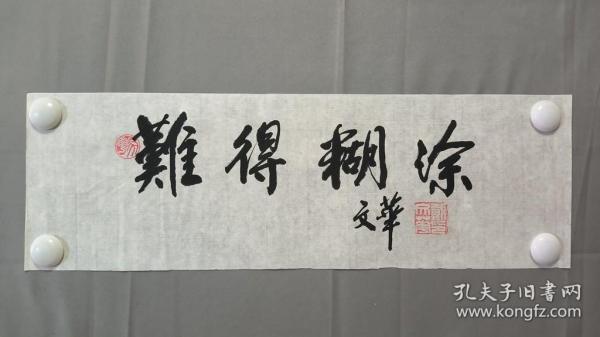 難得糊涂
文華
孔夫子旧書网
www.kongfz.com